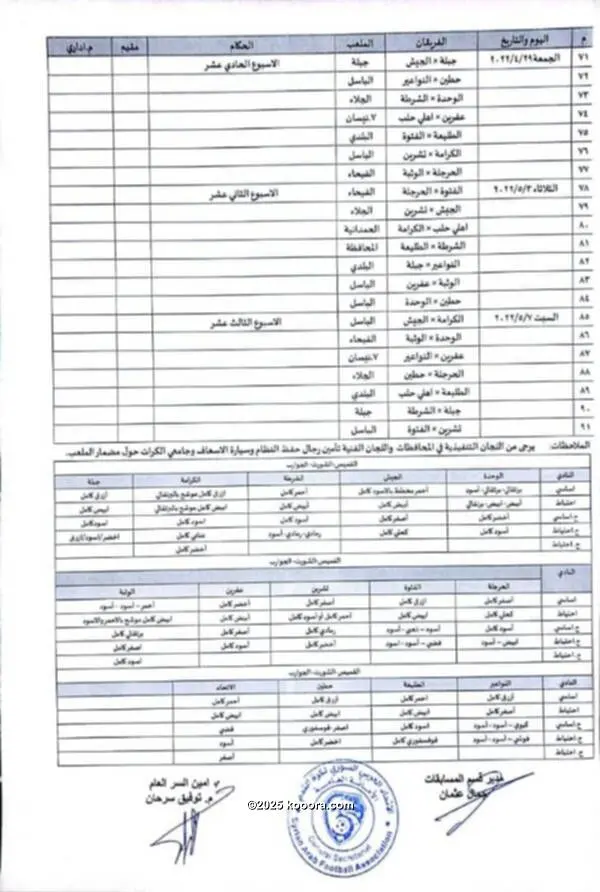 م اليوم والتاريخ الفريقان الملعب الحكام مقيم م.اداري
٧١ الجمعة ٢٠٢٢/٤/٢٩ جبلة × الجيش جبلة الاسبوع الحادي عشر
٧٢ حطين × النواعير الباسل
٧٣ الوحدة × الشرطة الجلاء
٧٤ عفرين × اهلي حلب ٧.نيسان
٧٥ الطليعة × الفتوة البلدي
٧٦ الكرامة × تشرين الباسل
٧٧ الحرجلة × الوثبة الفيحاء
٧٨ الثلاثاء ٢٠٢٢/٥/٣ الفتوة × الحرجلة الفيحاء الاسبوع الثاني عشر
٧٩ الجيش × تشرين الجلاء
٨٠ اهلي حلب × الكرامة الحمدانية
٨١ الشرطة × الطليعة المحافظة
٨٢ النواعير × جبلة البلدي
٨٣ الوثبة × عفرين الباسل
٨٤ حطين × الوحدة الباسل
٨٥ السبت ٢٠٢٢/٥/٧ الكرامة × الجيش الباسل الاسبوع الثالث عشر
٨٦ الوحدة × الوثبة الفيحاء
٨٧ عفرين × النواعير ٧.نيسان
٨٨ الحرجلة × حطين الجلاء
٨٩ الطليعة × اهلي حلب البلدي
٩٠ جبلة × الشرطة جبلة
٩١ تشرين × الفتوة الباسل
الملاحظات: يرجى من اللجان التنفيذية في المحافظات واللجان الفنية تأمين رجال حفظ النظام وسيارة الاسعاف وجامعي الكرات حول مضمار الملعب.
القميص-الشورت-الجوارب
النادي الوحدة الجيش الشرطة الكرامة جبلة
اساسي برتقالي-برتقالي-أسود أحمر مخطط بالاسود كامل أحمر كامل ازرق كامل موشح بالبرتقالي أزرق كامل
احتياط أبيض-أبيض-برتقالي أبيض كامل أبيض كامل ابيض كامل موشح بالبرتقالي ابيض كامل
ح.اساسي أخضر كامل أصفر كامل أسود كامل اسود كامل اسود كامل
ح.احتياط أسود كامل كحلي كامل رمادي-رمادي-أسود كامل اخضر/اسود/ازرق
ح.احتياط أخضر كامل
القميص-الشورت-الجوارب
النادي الحرجلة الفتوة تشرين عفرين الوثبة
اساسي أصفر كامل ازرق كامل أصفر كامل أخضر كامل أحمر - أسود - أسود
احتياط كحلي كامل ابيض كامل أحمر كامل أو أسود كامل أبيض كامل ابيض كامل موشح بالاحمر والاسود
ح.اساسي أسود كامل أسود - - أسود رمادي كامل أصفر كامل برتقالي كامل
ح.احتياط ابيض - أسود فضي - أسود - اسود أخضر كامل أسود كامل اصفر كامل
ح.احتياط اسود كامل
القميص-الشورت-الجوارب
النادي النواعير الطليعة حطين الاتحاد
اساسي أزرق كامل احمر كامل أزرق كامل أحمر كامل
احتياط أصفر كامل ابيض كامل ابيض كامل ابيض كامل
ح.اساسي - أسود - أسود اسود كامل اصفر فوسفوري فضي
ح.احتياط - أسود - أسود فوسفوري كامل اخضر كامل أسود
ح.احتياط أصفر
مدير قسم المسابقات
جمال عثمان
امين السر العام
م. توفيق سرحان
الاتحاد العربي السوري لكرة القدم
الأمانة العامة
General Secretariat
Syrian Arab Football Association
©2025 kooora.com